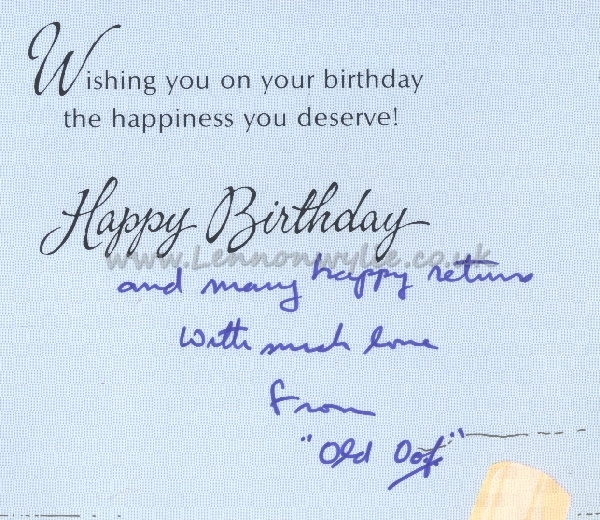 Wishing you on your birthday
the happiness you deserve!
Happy Birthday
www.Lennonwylie.co.uk
and many happy returns
With much love
from
"Old Oof"